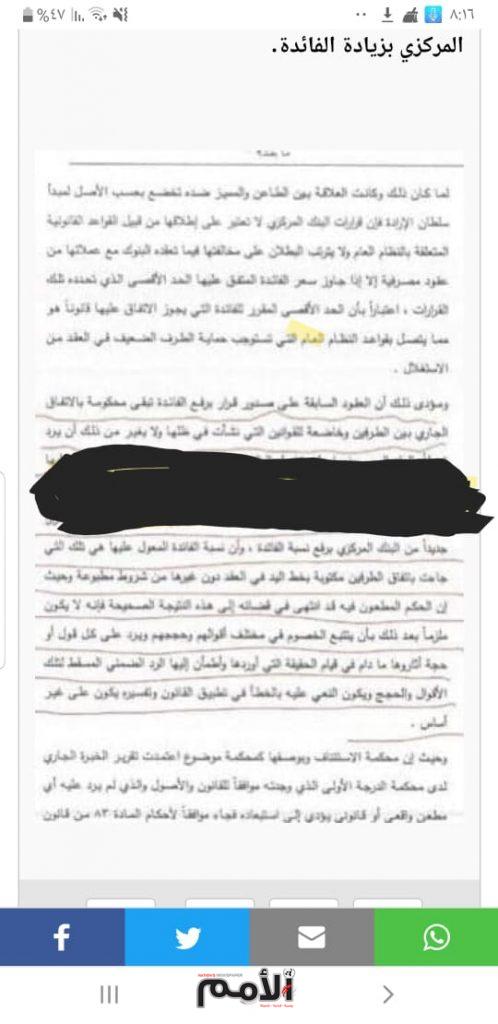 ٨:١٦
٪٤٧
المركزي بزيادة الفائدة.
ما بعد؟
لما كان ذلك وكانت العلاقة بين الطاعن والمميز ضده تخضع بحسب الأصل لمبدأ
سلطان الإرادة فإن قرارات البنك المركزي لا تعتبر على إطلاقها من قبيل القواعد القانونية
المتعلقة بالنظام العام ولا يترتب البطلان على مخالفتها فيما تعقده البنوك مع عملائها من
عقود مصرفية إلا إذا جاوز سعر الفائدة المتفق عليها الحد الأقصى الذي تحدده تلك
القرارات ، اعتباراً بأن الحد الأقصى المقرر للفائدة التي يجوز الاتفاق عليها قانوناً هو
مما يتصل بقواعد النظام العام التي تستوجب حماية الطرف الضعيف في العقد من
الاستغلال .
ومؤدى ذلك أن العقود السابقة على صدور قرار برفع الفائدة تبقى محكومة بالاتفاق
الجاري بين الطرفين وخاضعة للقوانين التي نشأت في ظلها ولا يغير من ذلك أن يرد
جديداً من البنك المركزي برفع نسبة الفائدة ، وأن نسبة الفائدة المعول عليها هي تلك التي
جاءت باتفاق الطرفين مكتوبة بخط اليد في العقد دون غيرها من شروط مطبوعة وحيث
إن الحكم المطعون فيه قد انتهى في قضائه إلى هذه النتيجة الصحيحة فإنه لا يكون
ملزماً بعد ذلك بأن يتتبع الخصوم في مختلف أقوالهم وحججهم ويرد على كل قول أو
حجة أثاروها ما دام في قيام الحقيقة التي أوردها وأطمأن إليها الرد الضمني المسقط لتلك
الأقوال والحجج ويكون النعي عليه بالخطأ في تطبيق القانون وتفسيره يكون على غير
أساس .
وحيث إن محكمة الاستئناف وبوصفها كمحكمة موضوع اعتمدت تقرير الخبرة الجاري
لدى محكمة الدرجة الأولى الذي وجدته موافقاً للقانون والأصول والذي لم يرد عليه أي
مطعن واقعي أو قانوني يؤدي إلى استبعاده فجاء موافقاً لأحكام المادة ٨٣ من قانون
الأمم